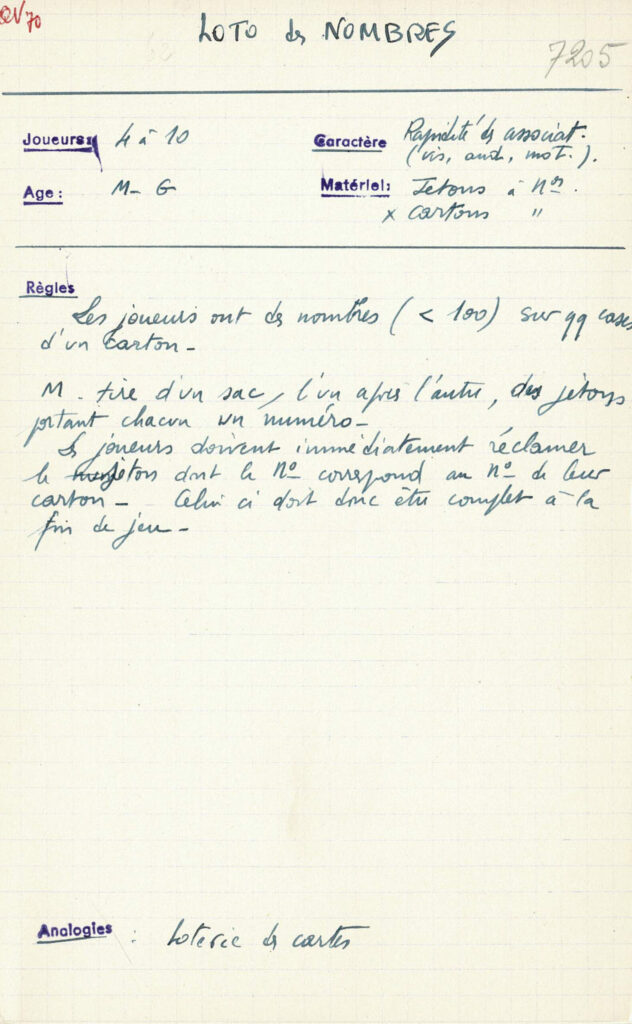 QV 70
LOTO des NOMBRES
7205
Joueurs: 4 à 10
Caractère Rapidité des associat.
(vis, aud, mot.).
Age: M - G
Matériel: Jetons à Nos.
x cartons "
Règles
Les joueurs ont des nombres (< 100) sur qq cases
d'un carton -
M. tire d'un sac, l'un après l'autre, des jetons
portant chacun un numéro -
Les joueurs doivent immédiatement réclamer
le jeton dont le No correspond au No de leur
carton - Celui ci doit donc être complet à la
fin de jeu -
Analogies : Loterie des cartes